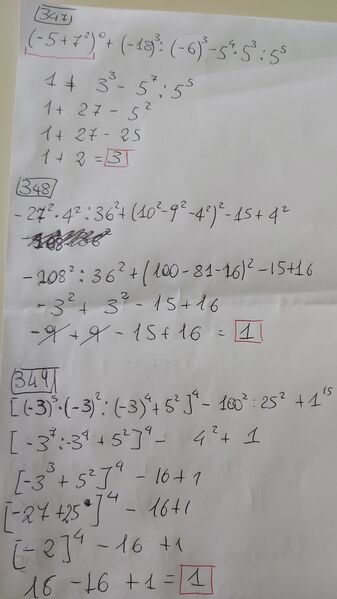 347
(-5+7²)⁰+(-18)³:(-6)³-5⁴·5³:5⁵
1+ 3³-5⁷:5⁵
1+ 27 - 5²
1+ 27 - 25
1+2 = 3
348
-27²·4²:36²+(10²-9²-4²)²-15+4²
-108²:36²+(100-81-16)²-15+16
-3²+ 3²-15+16
-9+9-15+16 = 1
349
[(-3)⁵·(-3)²:(-3)⁴+5²]⁴-100²:25²+1¹⁵
[-3⁷:-3⁴+5²]⁴- 4²+ 1
[-3³+5²]⁴-16+1
[-27+25]⁴-16+1
[-2]⁴-16+1
16-16+1=1